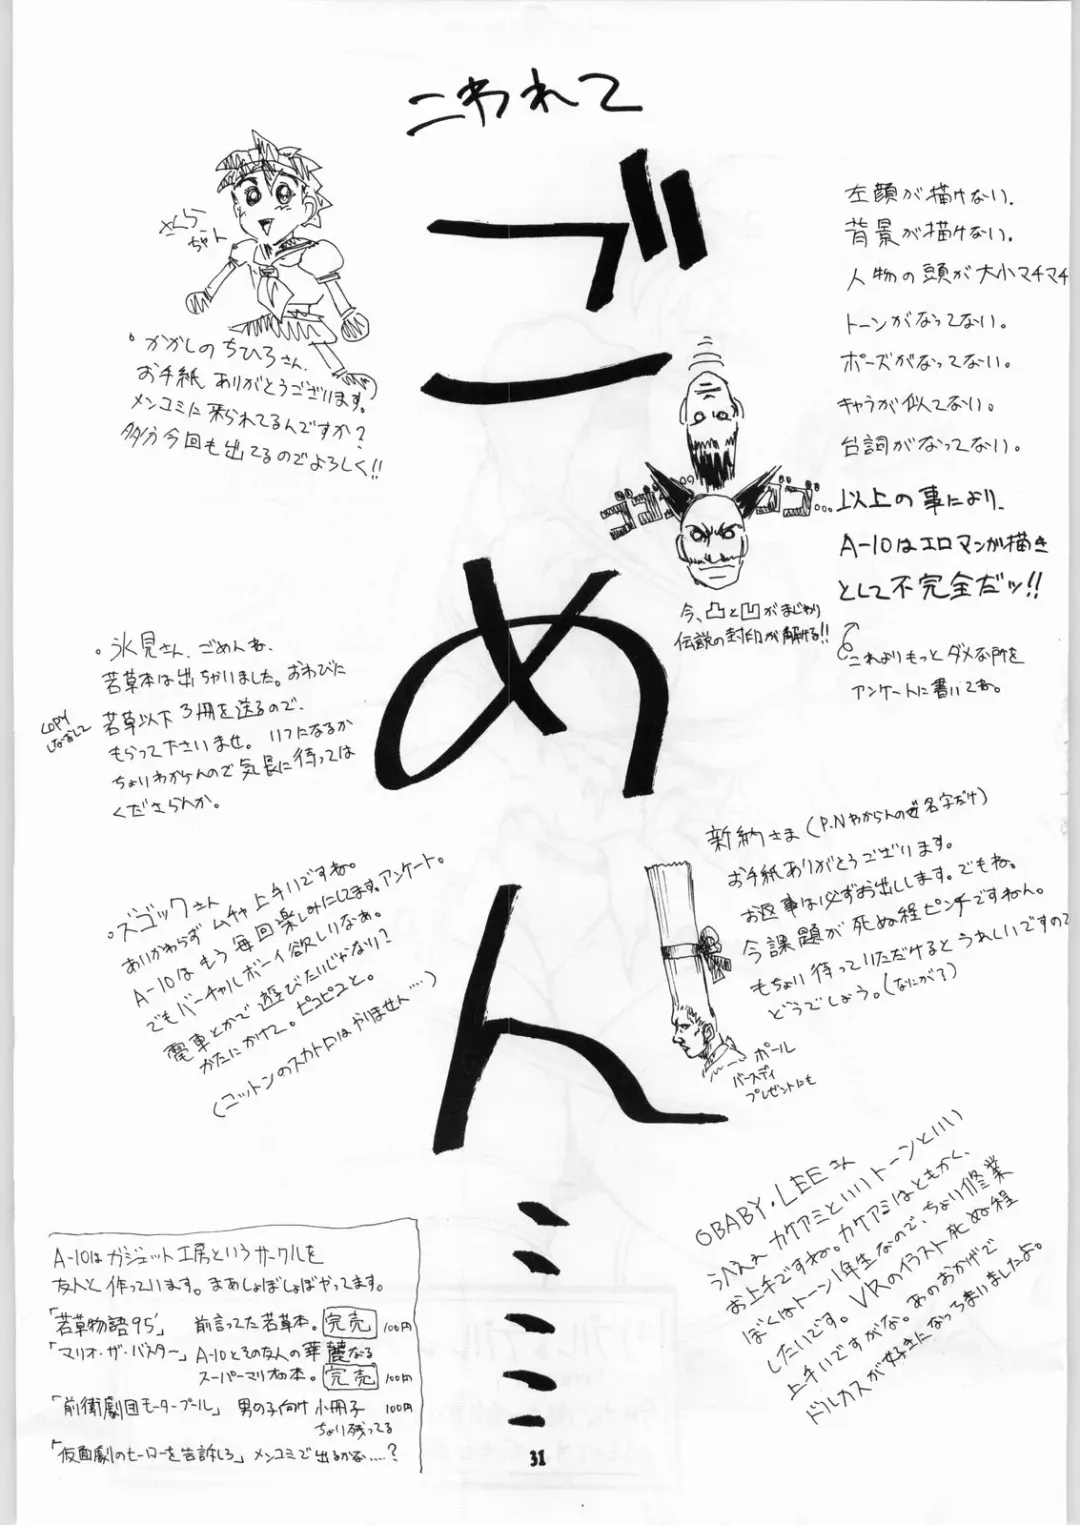 こわれて
ごめん……
さくら
ちゃん
左顔が描けない.
背景が描けない.
人物の頭が大小マチマチ
トーンがなってない。
ポーズがなってない。
キャラが似てない。
台詞がなってない。
以上の事により、
A-10はエロマンガ描き
として不完全だッ!!
これよりもっとダメな所を
アンケートに書いてね。
今、凸と凹がまじわり
伝説の封印が解ける!!
・かがしのちひろさん.
お手紙ありがとうございます。
メンコミに来られてるんですか?
多分今回も出てるのでよろしく!!
・氷見さん、ごめんね、
若草本は出ちゃいました。おわびに
若草以下3冊を送るので、
COPY
しなおして
もらって下さいませ。いつになるか
ちょいわからんので気長に待っては
くださらんか。
・ズゴックさん
あいかわらずムチャ上手いですね。
A-10はもう毎回楽しみにしてます。アンケート。
でもバーチャルボーイ欲しいなぁ。
電車とかで遊びたいじゃない?
かたにかけて。ピコピコと。
(コットンのスカトロはやりません…)
新納さま(P.Nわからんのぜ名字だけ)
お手紙ありがとうございます。
お返事は必ずお出しします。でもね。
今課題が死ぬ程ピンチですねん。
もちょい待っていただけるとうれしいですので
どうでしょう。(なにが?)
ポール
バースディ
プレゼントにも
○BABY・LEEさん
うへぇぇカケアミといいトーンといい
お上手ですね。カケアミはともかく、
ぼくはトーン1年生なので、ちょい修業
したいです。VRのイラスト死ぬ程
上手いですがな。あのおかげで
ドルカスが好きになっちまいましたよ。
A-10はガジェット工房というサークルを
友人と作っています。まあしょぼしょぼやってます。
「若草物語95'」 前言ってた若草本。完売 100円
「マリオ・ザ・バスター」A-10とその友人の華麗なる
スーパーマリオの本。完売 100円
「前衛劇団モータープール」 男の子向け小冊子 100円
ちょい残ってる
「仮面劇のヒーローを告訴しろ」メンコミで出るかな….?
31